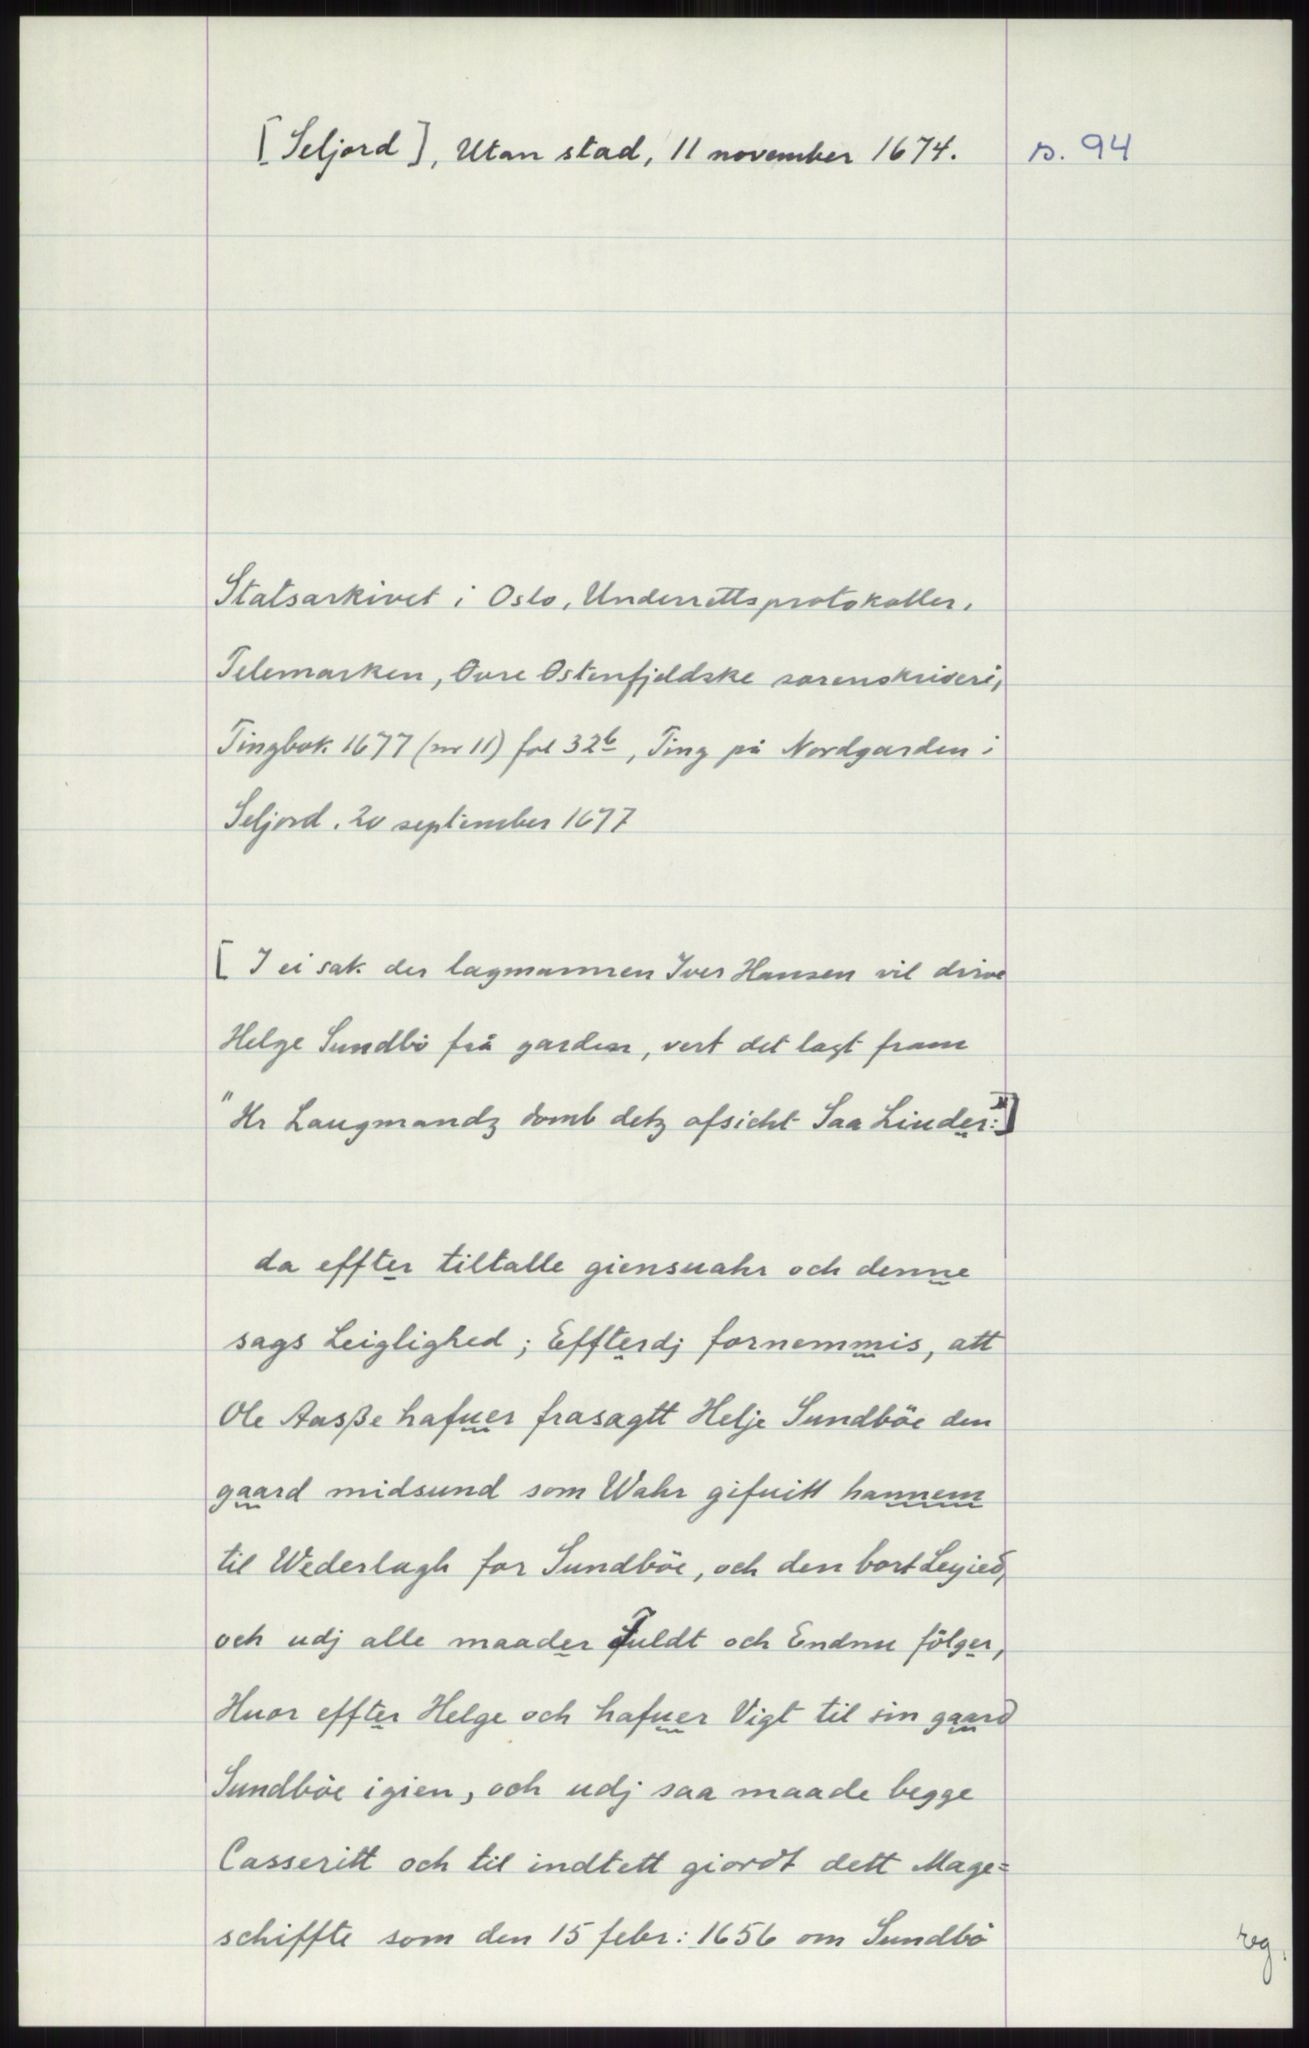 [Seljord], Utan stad, 11 november 1674. s. 94
Statsarkivet i Oslo, Underrettsprotokoller,
Telemarken, Øvre Østenfjeldske sorenskriveri,
Tingbok 1677 (nr 11) fol 32b, Ting på Nordgarden i
Seljord. 20 september 1677
[I ei sak der lagmannen Iver Hansen vil drive
Helge Sundbö frå garden, vert det lagt fram
"Hr Laugmandz domb detz afsicht Saa Liuder:"]
da effter tiltalle giensuahr och denne
sags Leiglighed; Effterdj fornemmis, att
Ole Aasße hafuer frasagtt Helje Sundböe den
gaard midsund som Wahr gifuitt hannem
til Wederlagh for Sundböe, och den bort Leyied,
och udj alle maader Fuldt och Endnu fölger,
Huor effter Helge och hafuer Vigt til sin gaard
Sundböe igien, och udj saa maade begge
Casseritt och til indtett giordt dett Mage=
schiffte som den 15 febr: 1656 om Sundbö
reg.